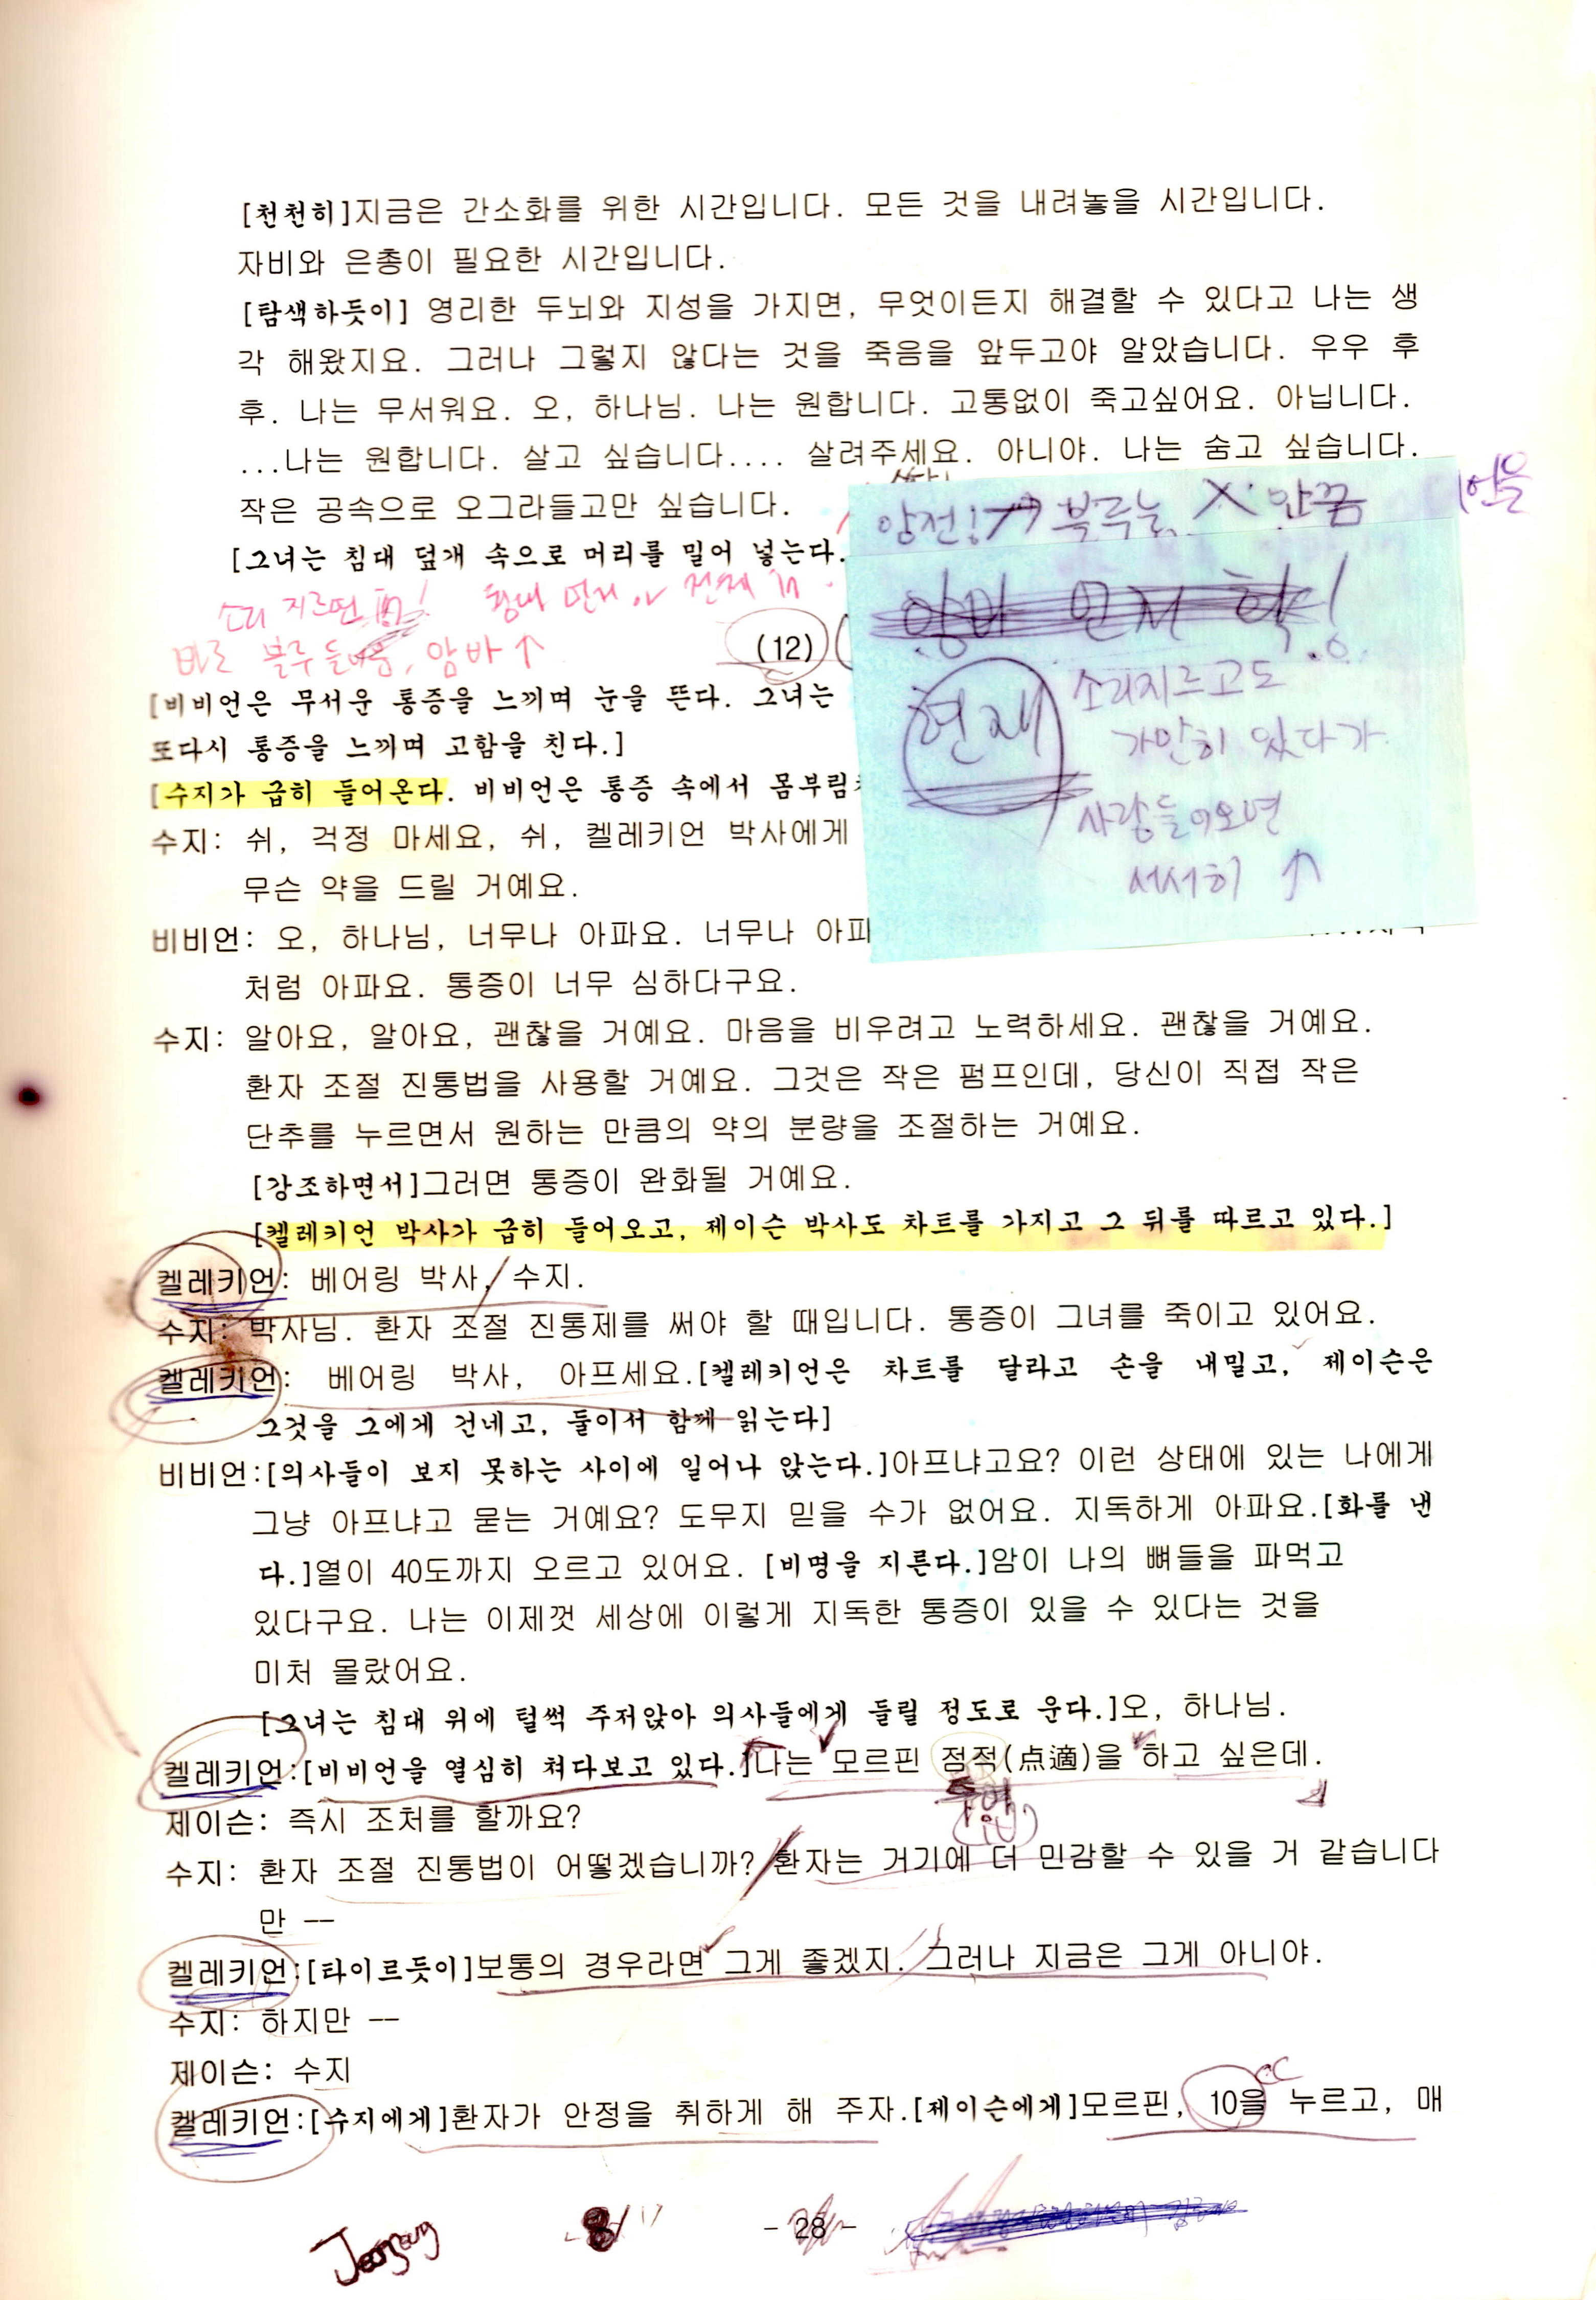 [천천히]지금은 간소화를 위한 시간입니다. 모든 것을 내려놓을 시간입니다.
자비와 은총이 필요한 시간입니다.
[탐색하듯이] 영리한 두뇌와 지성을 가지면, 무엇이든지 해결할 수 있다고 나는 생
각 해왔지요. 그러나 그렇지 않다는 것을 죽음을 앞두고야 알았습니다. 우우 후
후. 나는 무서워요. 오, 하나님. 나는 원합니다. 고통없이 죽고싶어요. 아닙니다.
...나는 원합니다. 살고 싶습니다.... 살려주세요. 아니야. 나는 숨고 싶습니다.
작은 공속으로 오그라들고만 싶습니다.
암전! → 부루늘 X 안끔
[그녀는 침대 덮개 속으로 머리를 밀어 넣는다.
소리 지르면 in! 침대 먼저 in 전체 in
먼저
바로 블루 암바↑
(12)
현재
소리지르고도
가만히 있다가
사람들어오면
서서히 ↑
[비비언은 무서운 통증을 느끼며 눈을 뜬다. 그녀는
또다시 통증을 느끼며 고함을 친다.]
[수지가 급히 들어온다. 비비언은 통증 속에서 몸부림
수지: 쉬, 걱정 마세요, 쉬, 켈레키언 박사에게
무슨 약을 드릴 거예요.
비비언: 오, 하나님, 너무나 아파요. 너무나 아파
처럼 아파요. 통증이 너무 심하다구요.
수지: 알아요, 알아요, 괜찮을 거예요. 마음을 비우려고 노력하세요. 괜찮을 거예요.
환자 조절 진통법을 사용할 거예요. 그것은 작은 펌프인데, 당신이 직접 작은
단추를 누르면서 원하는 만큼의 약의 분량을 조절하는 거예요.
[강조하면서]그러면 통증이 완화될 거예요.
[켈레키언 박사가 급히 들어오고, 제이슨 박사도 차트를 가지고 그 뒤를 따르고 있다.]
켈레키언: 베어링 박사, 수지.
수지: 박사님. 환자 조절 진통제를 써야 할 때입니다. 통증이 그녀를 죽이고 있어요.
켈레키언: 베어링 박사, 아프세요.[켈레키언은 차트를 달라고 손을 내밀고, 제이슨은
그것을 그에게 건네고, 둘이서 함께 읽는다]
비비언:[의사들이 보지 못하는 사이에 일어나 앉는다.]아프냐고요? 이런 상태에 있는 나에게
그냥 아프냐고 묻는 거예요? 도무지 믿을 수가 없어요. 지독하게 아파요.[화를 낸
다.]열이 40도까지 오르고 있어요. [비명을 지른다.]암이 나의 뼈들을 파먹고
있다구요. 나는 이제껏 세상에 이렇게 지독한 통증이 있을 수 있다는 것을
미처 몰랐어요.
[그녀는 침대 위에 털썩 주저앉아 의사들에게 들릴 정도로 운다.]오, 하나님.
켈레키언:[비비언을 열심히 쳐다보고 있다.]나는 모르핀 점적(点適)을 하고 싶은데.
제이슨: 즉시 조처를 할까요?
수지: 환자 조절 진통법이 어떻겠습니까? 환자는 거기에 더 민감할 수 있을 거 같습니다
만 --
켈레키언:[타이르듯이]보통의 경우라면 그게 좋겠지. 그러나 지금은 그게 아니야.
수지: 하지만 --
제이슨: 수지
cc
켈레키언:[수지에게]환자가 안정을 취하게 해 주자.[제이슨에게]모르핀, 10을 누르고, 매
- 28 -